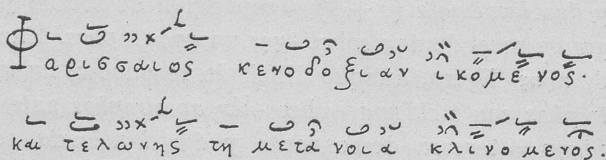 Φαρισσαιος κενοδοξιαν ικομενος·
και τελωνης τη μετανοια κλινομενος·